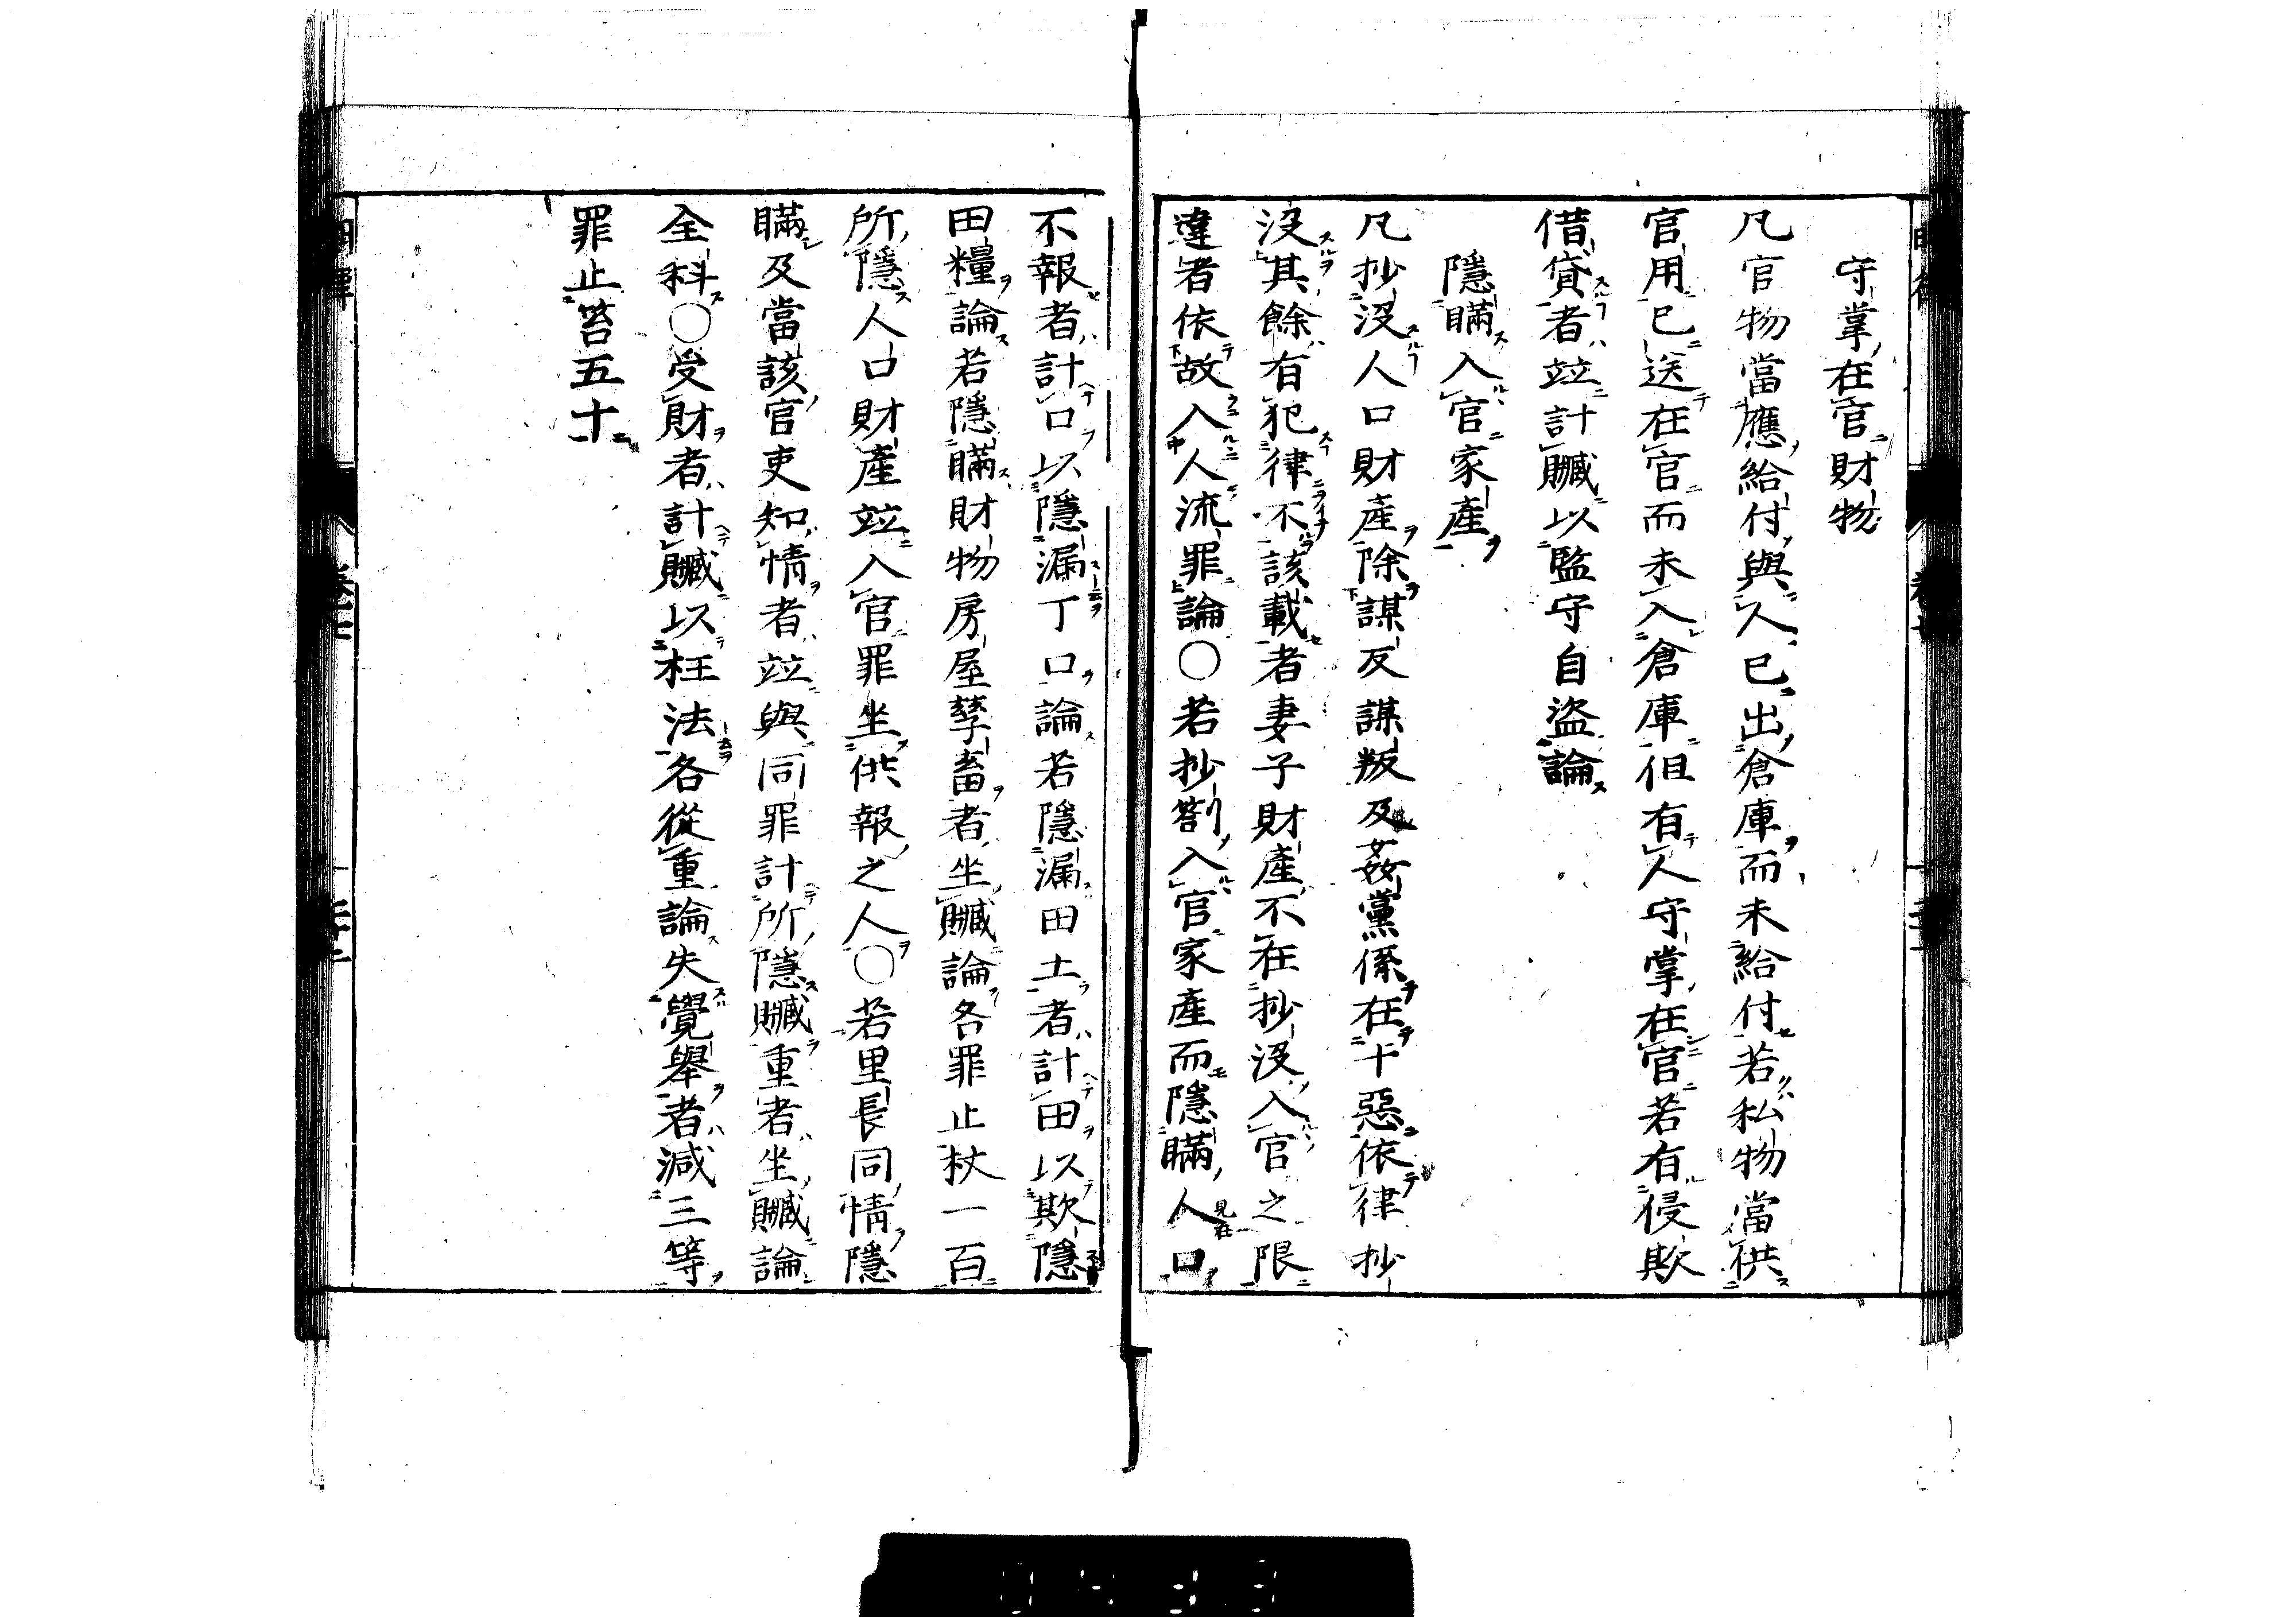 守掌在官財物
凡官物當應給付與人已出倉庫而未給付若私物當供
官用已送在官而未入倉庫但有人守掌在官若有侵欺
借貸者竝計贓以監守自盗論
隱瞞入官家產
凡抄沒人口財產除謀反謀叛及姦黨係在十惡依律抄
沒其餘有犯律不該載者妻子財產不在抄沒入官之限
違者依故入人流罪論〇若抄劄入官家產而隱瞞人口
不報者計口以隱漏丁口論若隱漏田土者計田以欺隱
田糧論若隱瞞財物房屋孳畜者坐贓論各罪止杖一百
所隱人口財產竝入官罪坐供報之人〇若里長同情隱
瞞及當該官吏知情者竝與同罪計所隱贓重者坐贓論
全科〇受財者計贓以枉法各從重論失覺舉者減三等
罪止笞五十